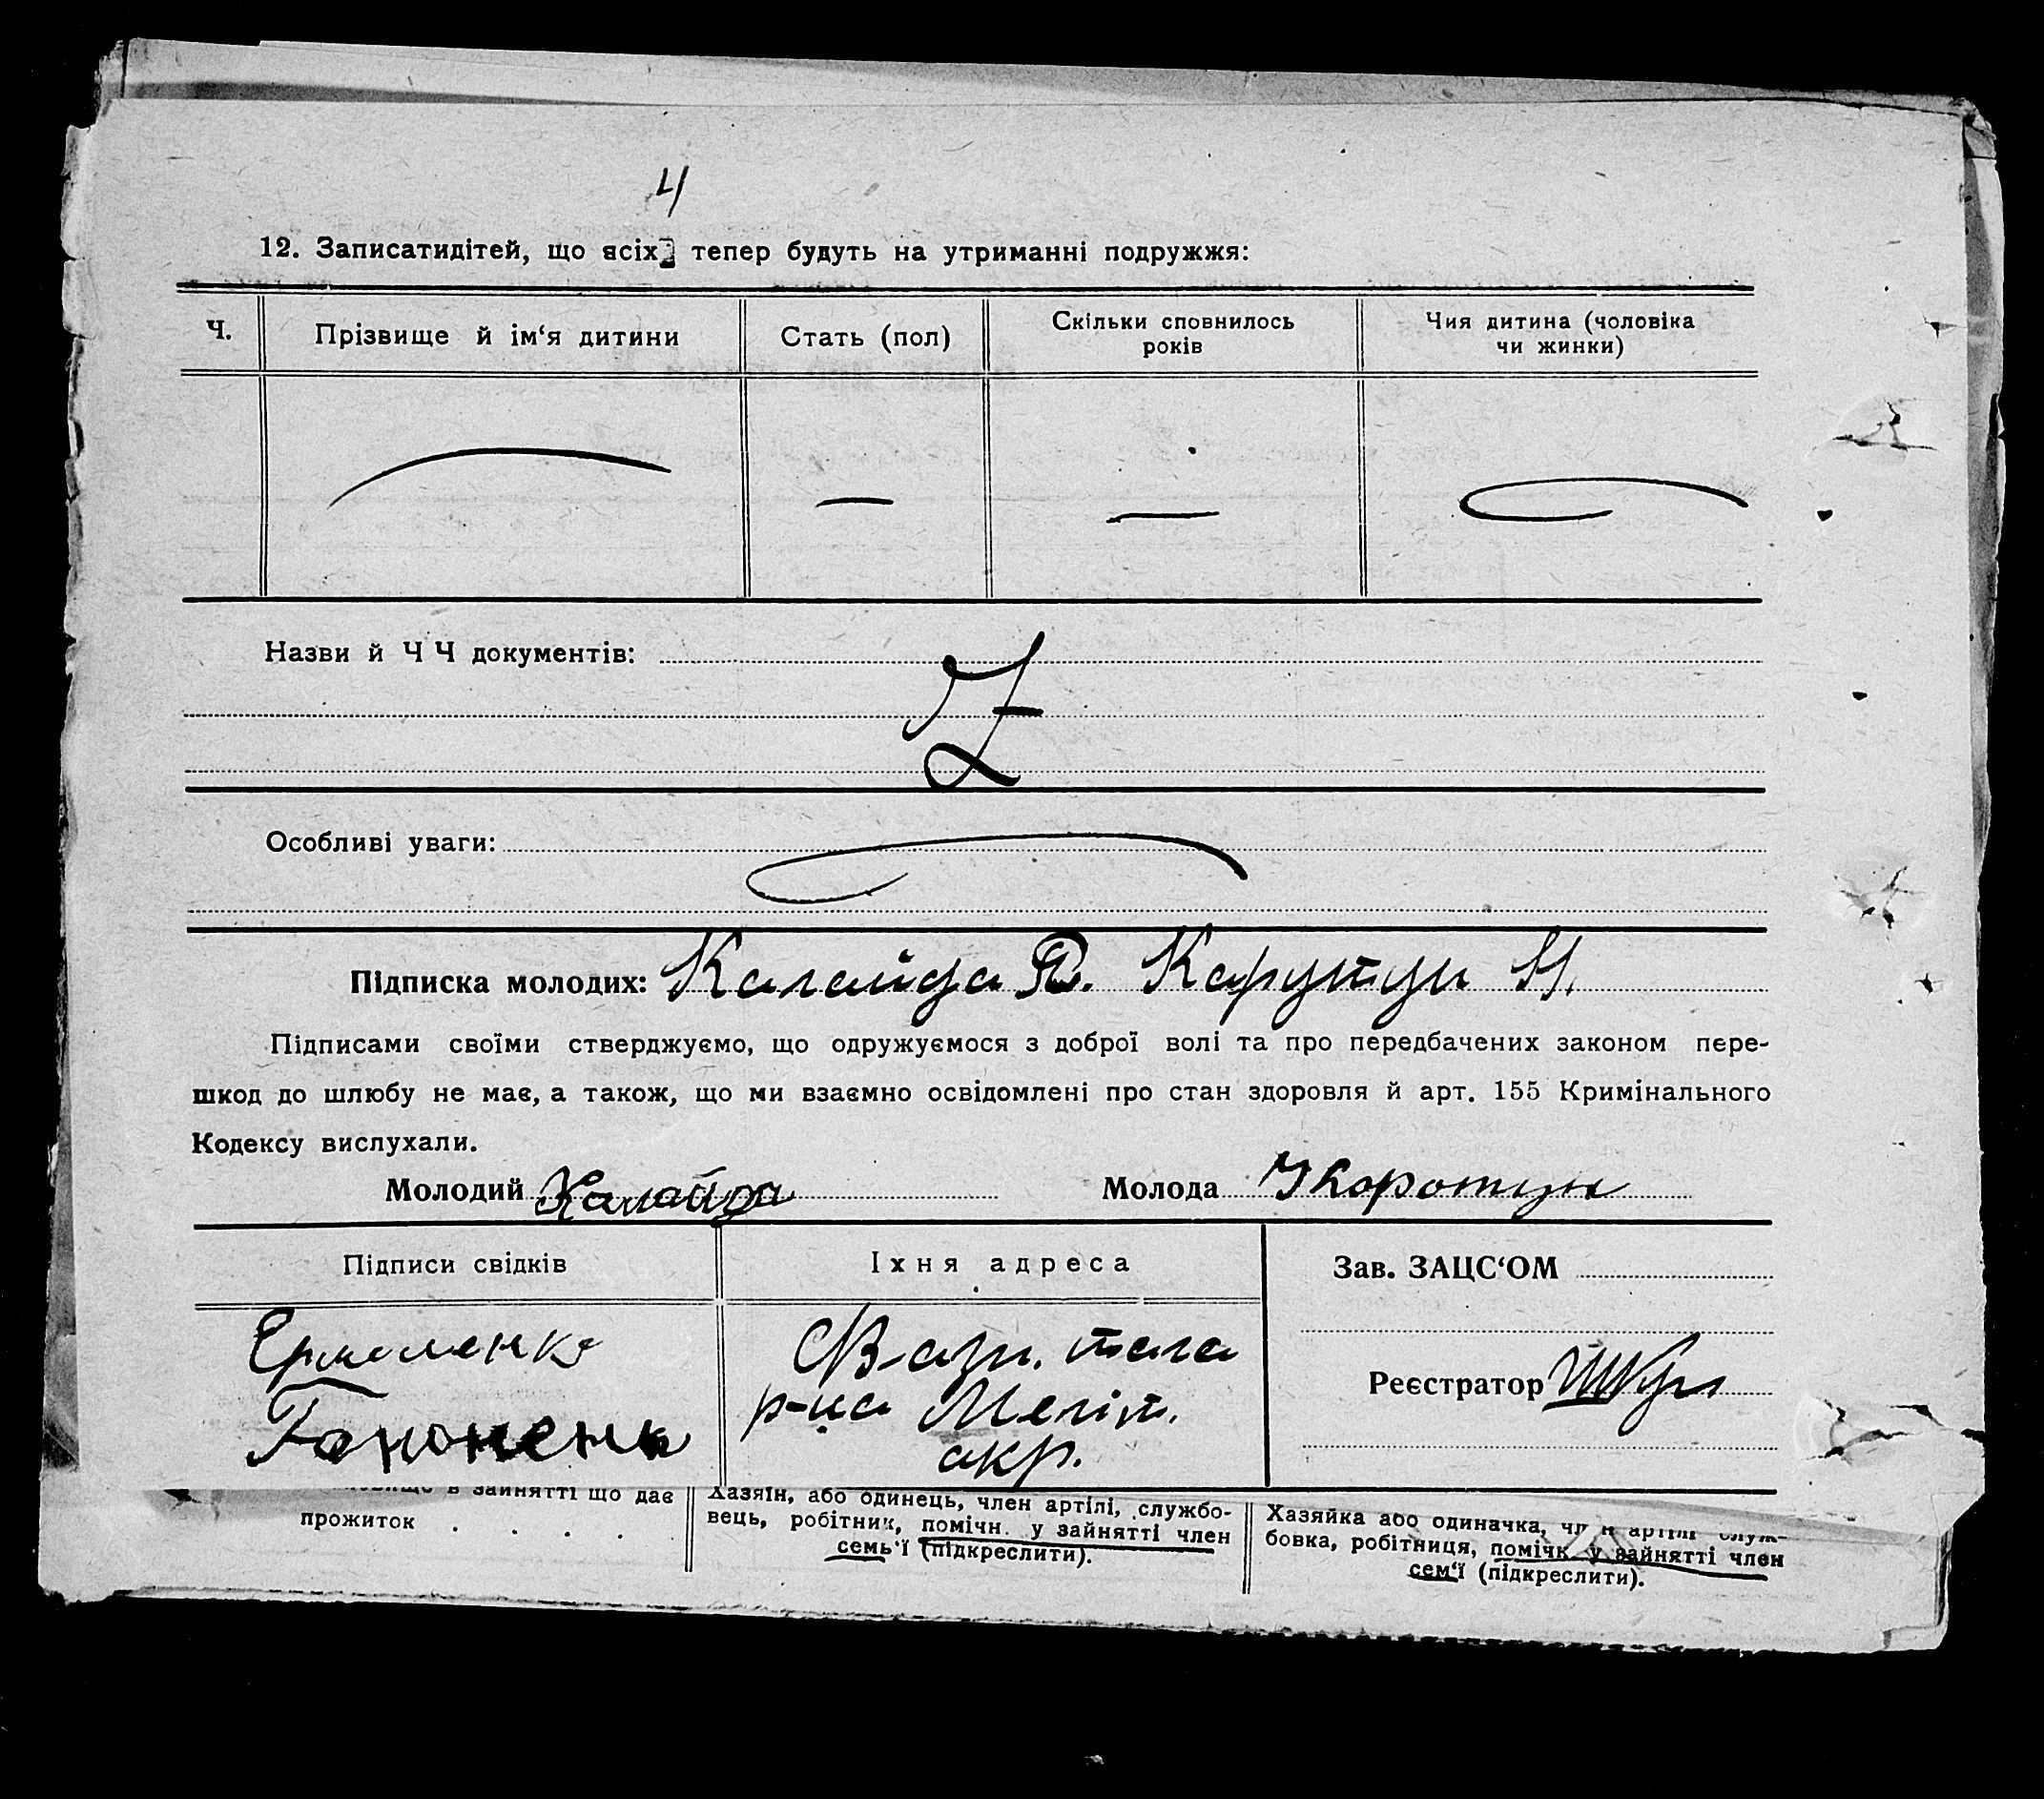 4
12. Записатидітей, що всіх тепер будуть на утриманні подружжя:
Ч. Прізвище й ім‘я дитини Стать (пол) Скільки сповнилось років Чия дитина (чоловіка чи жинки)
Назви й Ч Ч документів:
Особливі уваги:
Підписка молодих: Калайда П. Карутун Н.
Підписами своїми стверджуємо, що одружуємося з доброї волі та про передбачених законом пере-
шкод до шлюбу не має, а також, що ми взаємно освідомлені про стан здоровля й арт. 155 Кримінального
Кодексу вислухали.
Молодий Калайда Молода Коротун
Підписи свідків Їхня адреса Зав. ЗАЦС‘ОМ
Ермоленко
р-на Меліт.
окр.
Реєстратор
в зайнятті що дає
прожиток . . . .
Хазяїн, або одинець, член артілі, службо-
вець, робітник, помічн. у зайнятті член
семь‘ї (підкреслити).
Хазяйка або одиначка, член артілі служ-
бовка, робітниця, помічн. у зайнятті член
сем‘ї (підкреслити).